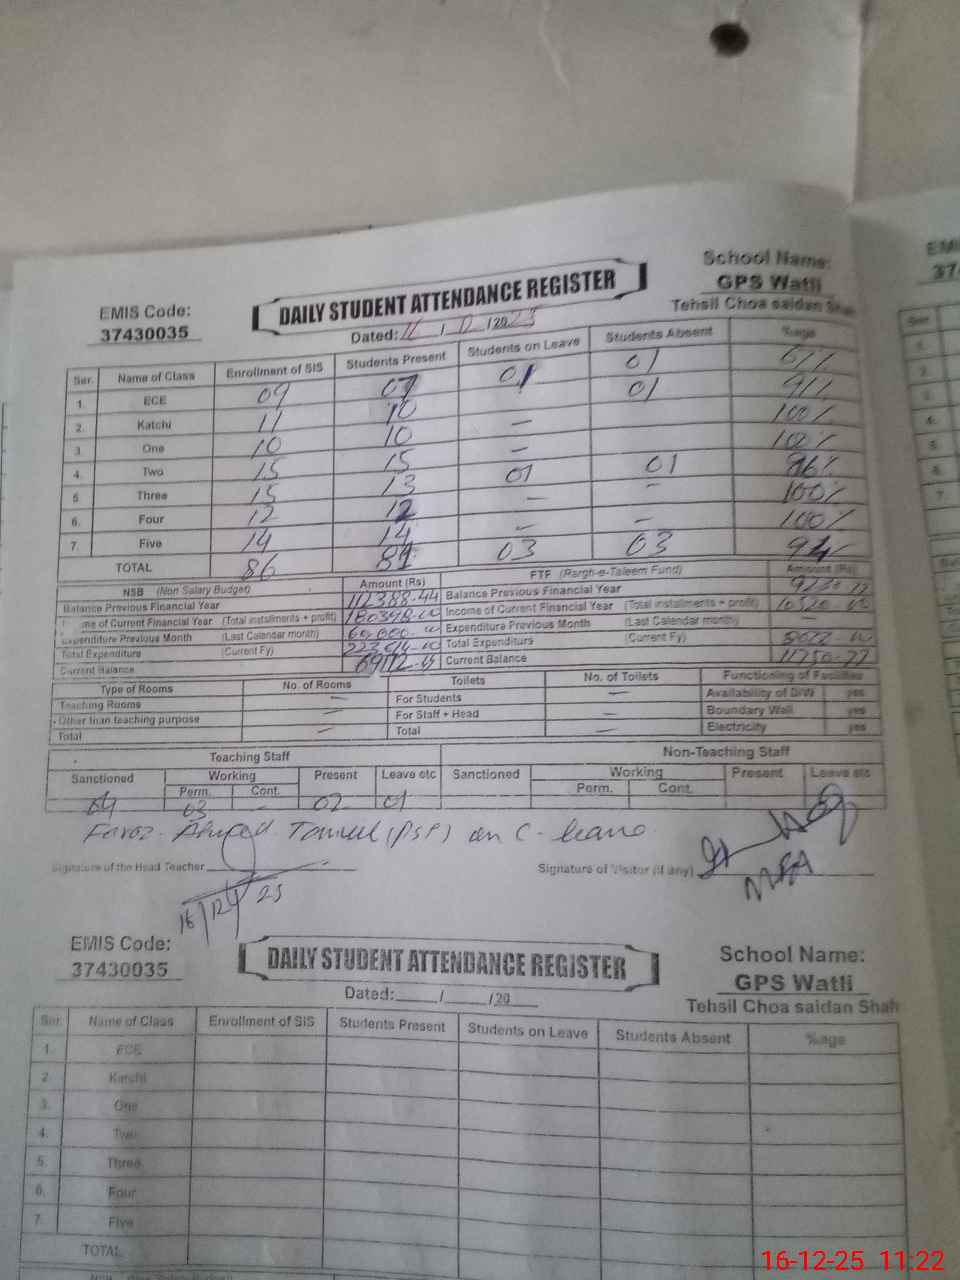 EMIS Code:
37430035
DAILY STUDENT ATTENDANCE REGISTER
School Name:
GPS Watli
Tehsil Choa saidan Shah
Dated: / /20
Ser. Name of Class Enrollment of SIS Students Present Students on Leave Students Absent %age
1. ECE 09 07 01 01
2. Katchi 11 10 01 91%
3. One 10 10 – 100%
4. Two 15 15 – 100%
5 Three 15 13 01 01 86%
6. Four 12 12 – – 100%
7. Five 14 14 – – 100%
TOTAL 86 03 03
NSB (Non Salary Budget) Amount (Rs) FTF (Fargh-e-Taleem Fund) Amount (Rs)
Balance Previous Financial Year 112388-44 Balance Previous Financial Year
me of Current Financial Year (Total installments + profit) Income of Current Financial Year (Total installments + profit)
Expenditure Previous Month (Last Calendar month) Expenditure Previous Month (Last Calendar month) –
Total Expenditure (Current Fy) Total Expenditure (Current Fy)
Current Balance Current Balance 11750-77
Type of Rooms No. of Rooms Toilets No. of Toilets Functioning of Facilities
Teaching Rooms – For Students – Availability of D/W yes
Other than teaching purpose – For Staff + Head – Boundary Wall yes
Total – Total – Electricity yes
Teaching Staff Non-Teaching Staff
Sanctioned Working Present Leave etc Sanctioned Working Present Leave etc
Perm. Cont. Perm. Cont.
04 03 – 02 01
on C-leave
Signature of the Head Teacher
Signature of Visitor (if any)
16/12/25
EMIS Code:
37430035
DAILY STUDENT ATTENDANCE REGISTER
School Name:
GPS Watli
Tehsil Choa saidan Shah
Dated: / /20
Ser. Name of Class Enrollment of SIS Students Present Students on Leave Students Absent %age
1. ECE
2. Katchi
3. One
4. Two
5. Three
6. Four
7. Five
TOTAL
16-12-25 11:22